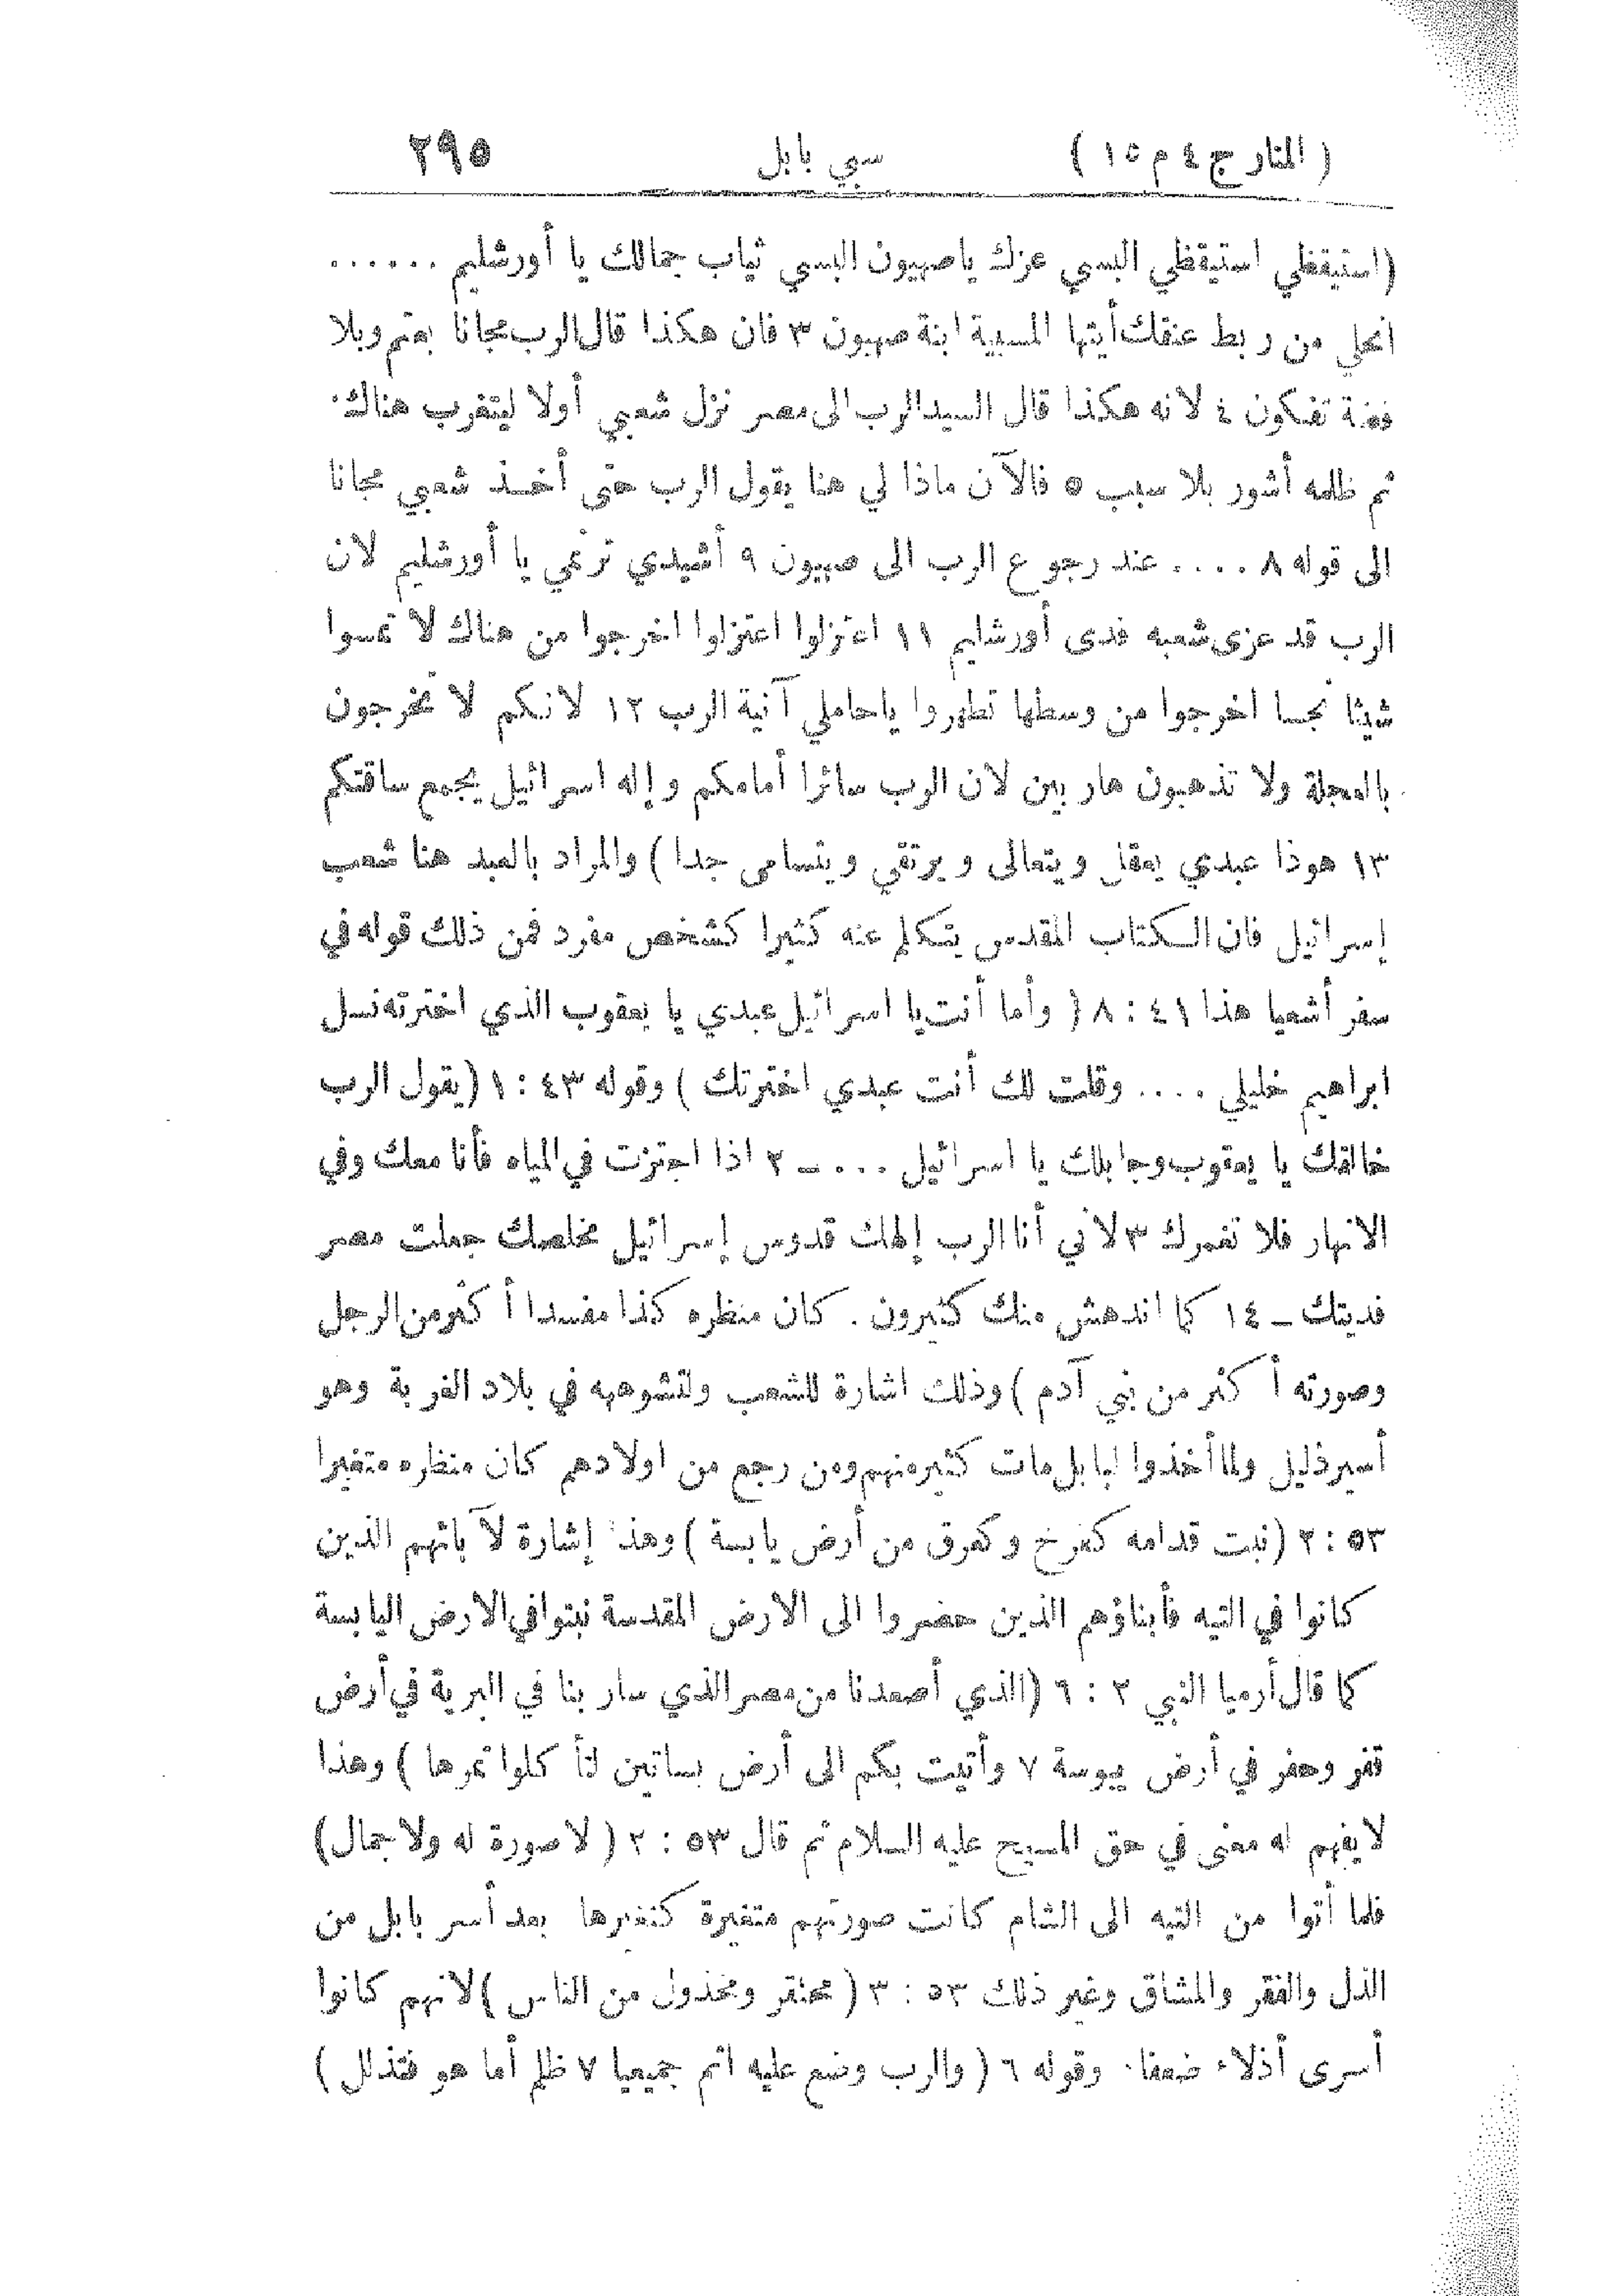 ( المنار ج ٤ م ١٥ ) سبي بابل ٢٩٥
(استيقظي استيقظي البسي عزك ياصهيون البسي ثياب جمالك يا أورشليم ......
انحلي من ربط عنقك أيتها المسبية ابنة صهيون ٣ فان هكذا قال الرب مجانا بعتم وبلا
فضة تفكون ٤ لانه هكذا قال السيد الرب الى مصر نزل شعبي أولا ليتغرب هناك
ثم ظلمه أشور بلا سبب ٥ فالآن ماذا لي هنا يقول الرب حتى أخذ شعبي مجانا
الى قوله ٨ .... عند رجوع الرب الى صهيون ٩ أشيدي ترنمي يا أورشليم لان
الرب قد عزى شعبه فدى أورشليم ١١ اعتزلوا اعتزلوا اخرجوا من هناك لا تمسوا
شيئا نجسا اخرجوا من وسطها تطهروا ياحاملي آنية الرب ١٢ لانكم لا تخرجون
بالعجلة ولا تذهبون هاربين لان الرب سائرا أمامكم وإله اسرائيل يجمع ساقتكم
١٣ هوذا عبدي يعقل ويتعالى ويرتقي ويتسامى جدا ) والمراد بالعبد هنا شعب
إسرائيل فان الكتاب المقدس يتكلم عنه كثيرا كشخص مفرد فمن ذلك قوله في
سفر أشعيا هذا ٤١ : ٨ ( وأما أنت يا اسرائيل عبدي يا يعقوب الذي اخترته نسل
ابراهيم خليلي .... وقلت لك أنت عبدي اخترتك ) وقوله ٤٣ : ١ (يقول الرب
خالقك يا يعقوب وجابلك يا اسرائيل ... ــ ٢ اذا اجتزت في المياه فأنا معك وفي
الانهار فلا تغمرك ٣ لاني أنا الرب إلهك قدوس إسرائيل مخلصك جعلت مصر
فديتك ــ ١٤ كما اندهش منك كثيرون . كان منظره كذا مفسدا أكثر من الرجل
وصورته أكثر من بني آدم ) وذلك اشارة للشعب ولتشوهه في بلاد الغربة وهو
أسير ذليل ولما أخذوا لبابل مات كثير منهم ومن رجع من اولادهم كان منظره متغيرا
٥٣ : ٢ (نبت قدامه كفرخ وكعرق من أرض يابسة ) وهذا إشارة لآبائهم الذين
كانوا في التيه فأبناؤهم الذين حضروا الى الارض المقدسة نبتوا في الارض اليابسة
كما قال أرميا النبي ٢ : ٦ (الذي أصعدنا من مصر الذي سار بنا في البرية في أرض
قفر وحفر في أرض يبوسة ٧ وأتيت بكم الى أرض بساتين لتأكلوا ثمرها ) وهذا
لا يفهم له معنى في حق المسيح عليه السلام ثم قال ٥٣ : ٢ ( لا صورة له ولا جمال)
فلما أتوا من التيه الى الشام كانت صورتهم متغيرة كتغيرها بعد أسر بابل من
الذل والفقر والمشاق وغير ذلك ٥٣ : ٣ ( محتقر ومخذول من الناس ) لانهم كانوا
أسرى أذلاء ضعفا. وقوله ٦ ( والرب وضع عليه اثم جميعيا ٧ ظلم أما هو فتذلل )